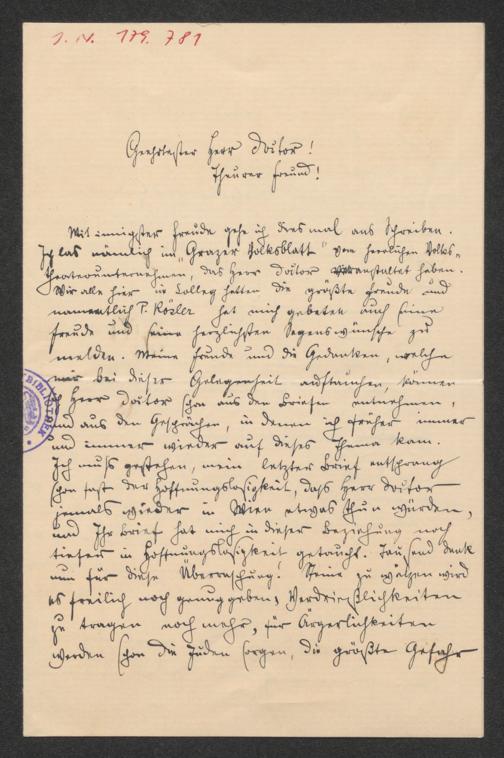 J. N. 179.781
Geehrtester Herr Doktor!
Theurer Freund!
Mit innigster Freude gehe ich diesmal ans Schreiben.
Ich las nämlich im „Grazer Volksblatt" vom herrlichen Volks-
theaterunternehmen, das Herr Doktor veranstaltet haben.
Wir alle hier in Colleg hatten die größte Freude und
namentlich P. Kösler hat mich gebeten auch seine
Freude und seine herzlichsten Segenswünsche zu
melden. Meine Freude und die Gedanken, welche
mir bei dieser Gelegenheit auftauchen, können
Herr Doktor schon aus den Briefen entnehmen,
und aus den Gesprächen, in denen ich früher immer
und immer wieder auf dieses Thema kam.
Ich muß gestehen, mein letzter Brief entsprang
schon fast der Hoffnungslosigkeit, daß Herr Doktor
jemals wieder in Wien etwas thun würden,
und Ihr Brief hat mich in dieser Beziehung noch
tiefer in Hoffnungslosigkeit getaucht. Tausend Dank
nun für diese Überraschung! Steine zu wälzen wird
es freilich noch genug geben, Verdrießlichkeiten
zu tragen noch mehr, für Ärgerlichkeiten
werden schon die Juden sorgen, die größte Gefahr